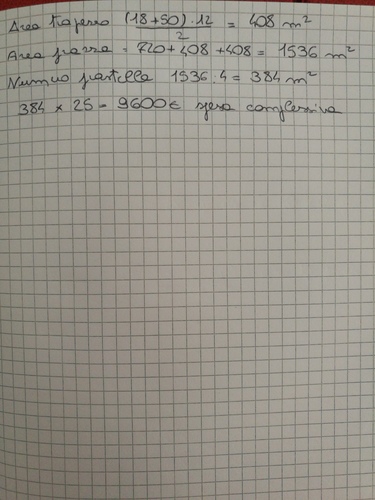 Area trapezio (18+50)·12 / 2 = 408 m²
Area piazza = 720+408+408 = 1536 m²
Numero piastrelle 1536:4 = 384 m²
384 × 25 = 9600€ spesa complessiva